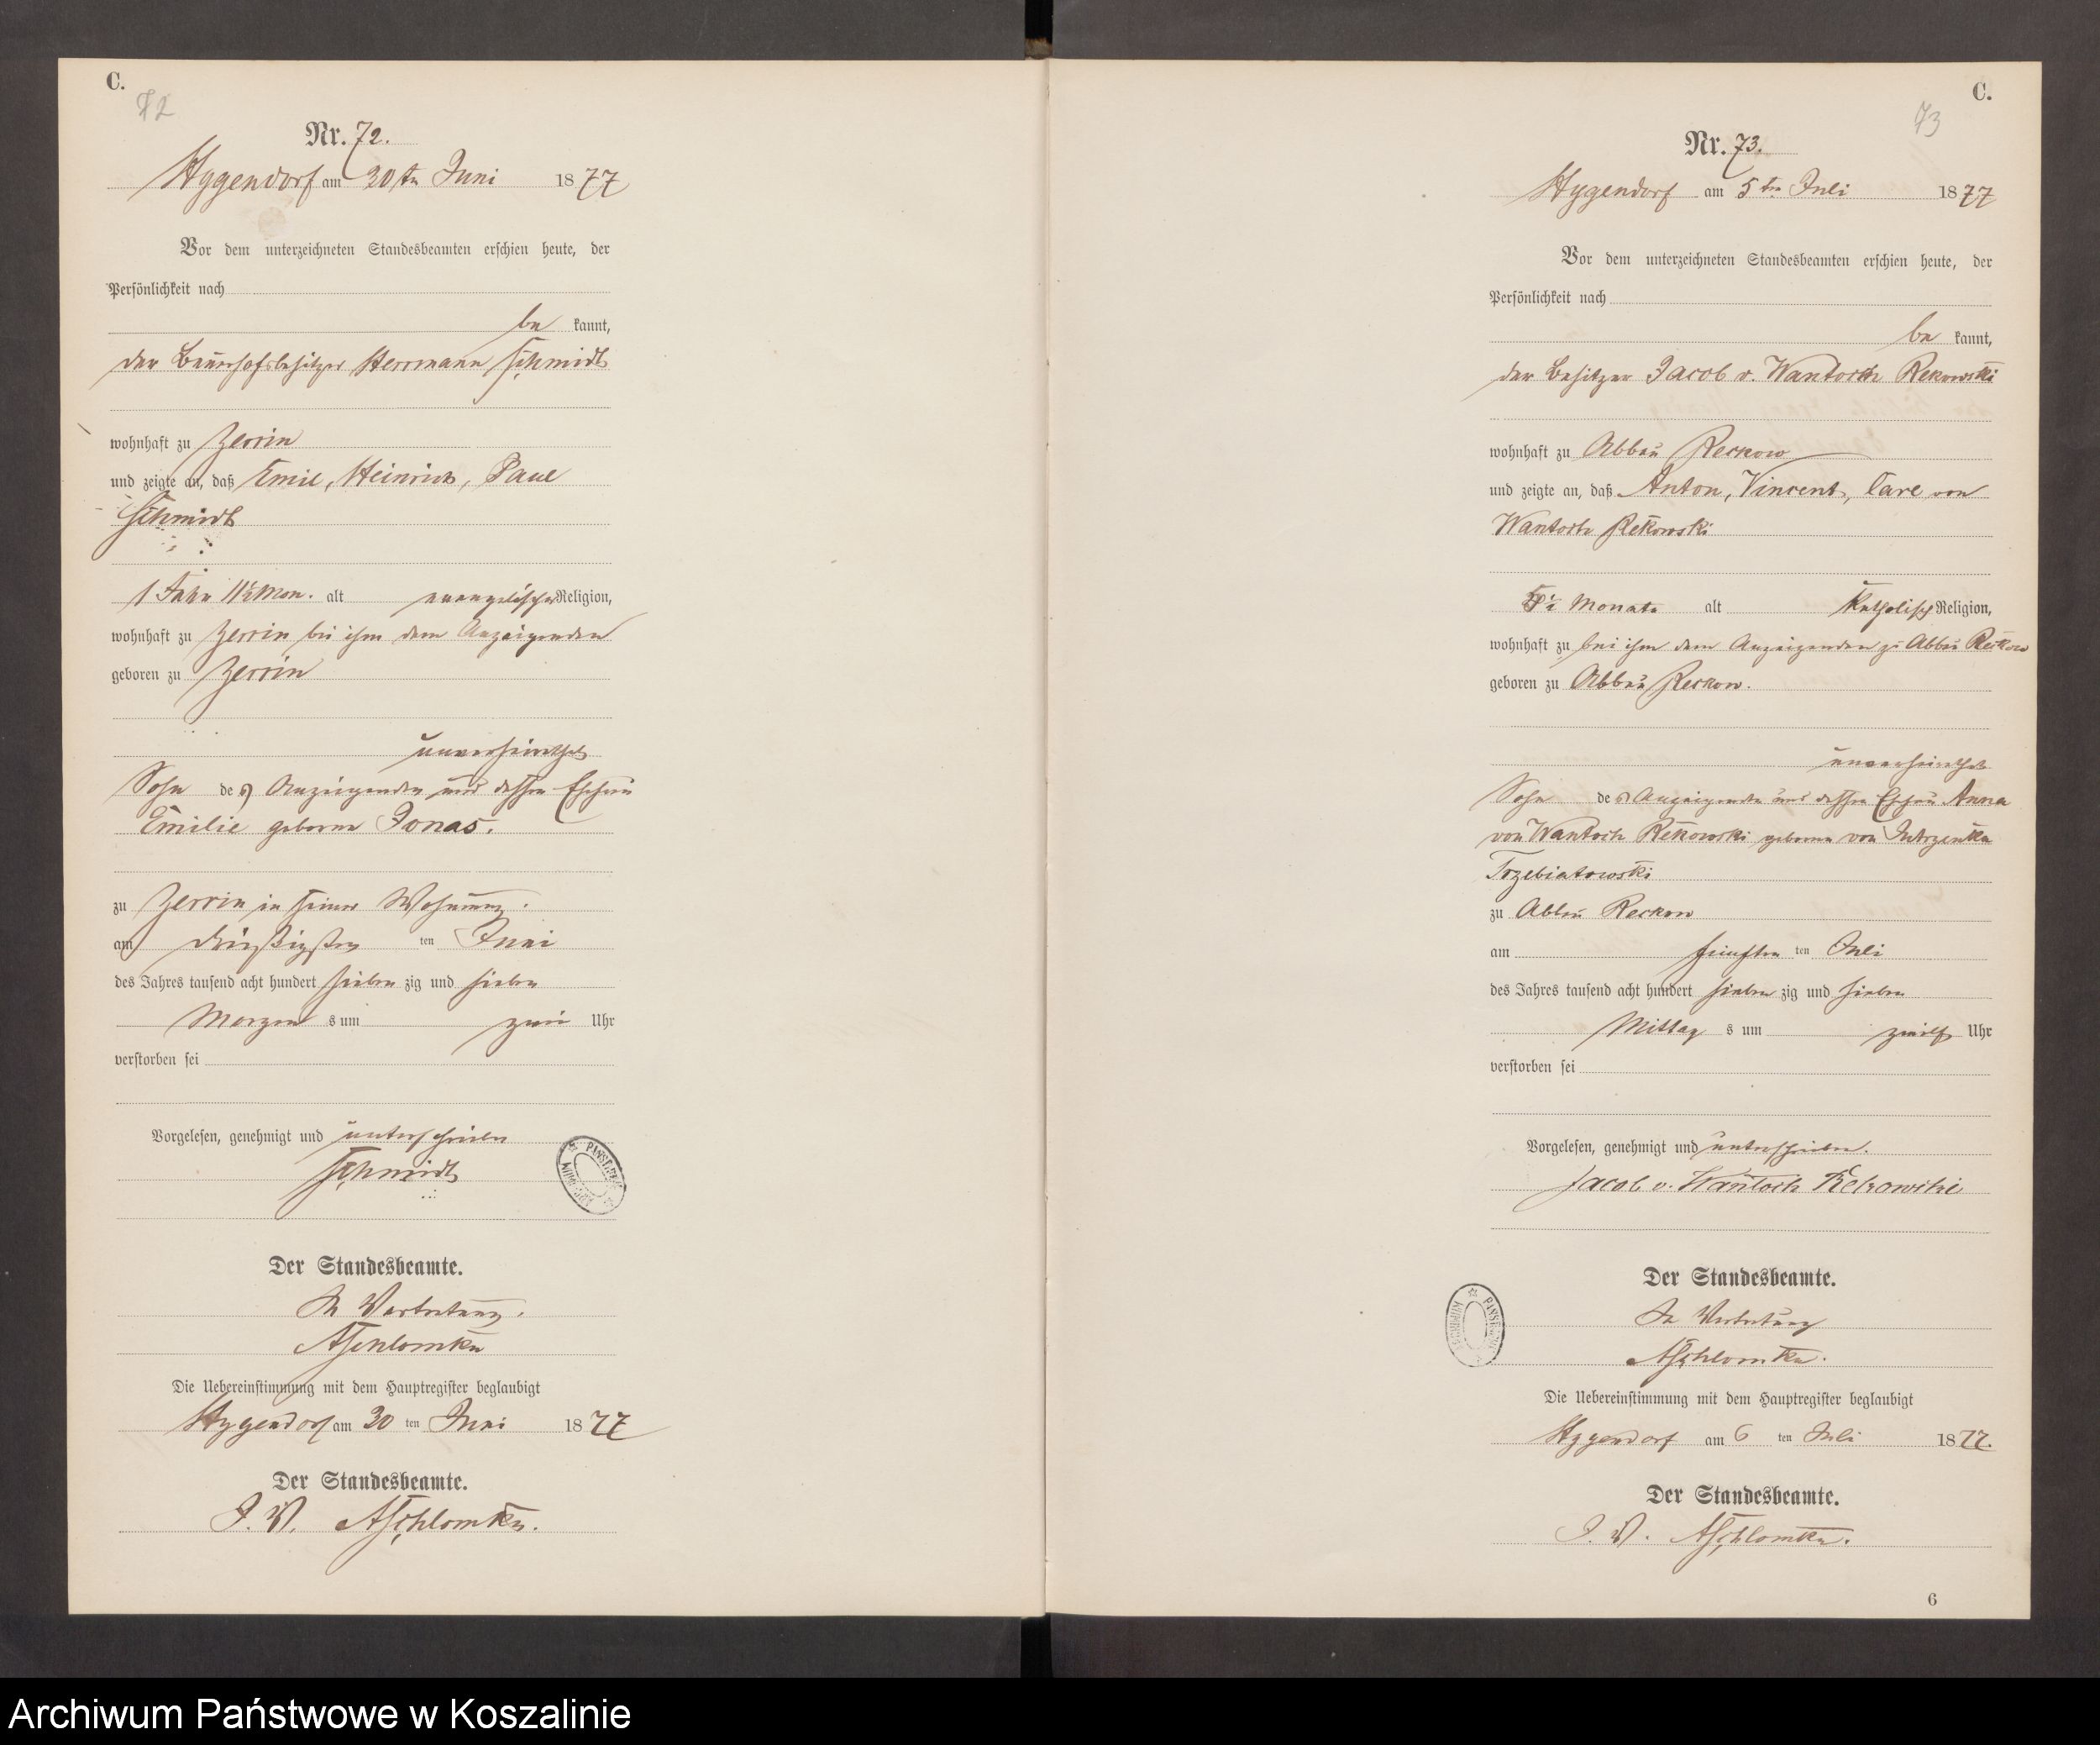 C.
72
Nr. 72.
Hygendorf am 30ten Juni 1877
Vor dem unterzeichneten Standesbeamten erschien heute, der
Persönlichkeit nach
be kannt,
der Bauerhofsbesitzer Herrmann Schmidt
wohnhaft zu Zerrin
und zeigte an, daß Emil, Heinrich, Paul
Schmidt
1 Jahr 11½ Mon. alt evangelischer Religion,
wohnhaft zu Zerrin bei ihm dem Anzeigenden
geboren zu Zerrin
unverheirathet
Sohn des Anzeigenden und dessen Ehefrau
Emilie geborne Jonas.
zu Zerrin in seiner Wohnung.
am dreißigsten ten Juni
des Jahres tausend acht hundert sieben zig und sieben
Morgen s um zwei Uhr
verstorben sei
Vorgelesen, genehmigt und unterschrieben
Schmidt
Der Standesbeamte.
In Vertretung.
ASchlomka
Die Uebereinstimmung mit dem Hauptregister beglaubigt
Hygendorf am 30 ten Juni 1877
Der Standesbeamte.
I. V. ASchlomka.
C.
73
Nr. 73.
Hygendorf am 5ten Juli 1877
Vor dem unterzeichneten Standesbeamten erschien heute, der
Persönlichkeit nach
be kannt,
der Besitzer Jacob v. Wantoch Rekowski
wohnhaft zu Abbau Reckow
und zeigte an, daß Anton, Vincent, Carl von
Wantoch Rekowski
½ Monate alt katholisch Religion,
wohnhaft zu bei ihm dem Anzeigenden zu Abbau Reckow
geboren zu Abbau Reckow.
unverheirathet
Sohn des Anzeigenden und dessen Ehefrau Anna
von Wantoch Rekowski geborne von Jutrzenka
Trzebiatowski
zu Abbau Reckow
am fünften ten Juli
des Jahres tausend acht hundert sieben zig und sieben
Mittag s um zwölf Uhr
verstorben sei
Vorgelesen, genehmigt und unterschrieben.
Jacob v. Wantoch Rekowski
Der Standesbeamte.
In Vertretung
ASchlomka.
Die Uebereinstimmung mit dem Hauptregister beglaubigt
Hygendorf am 6 ten Juli 1877.
Der Standesbeamte.
I. V. ASchlomka.
6
Archiwum Państwowe w Koszalinie